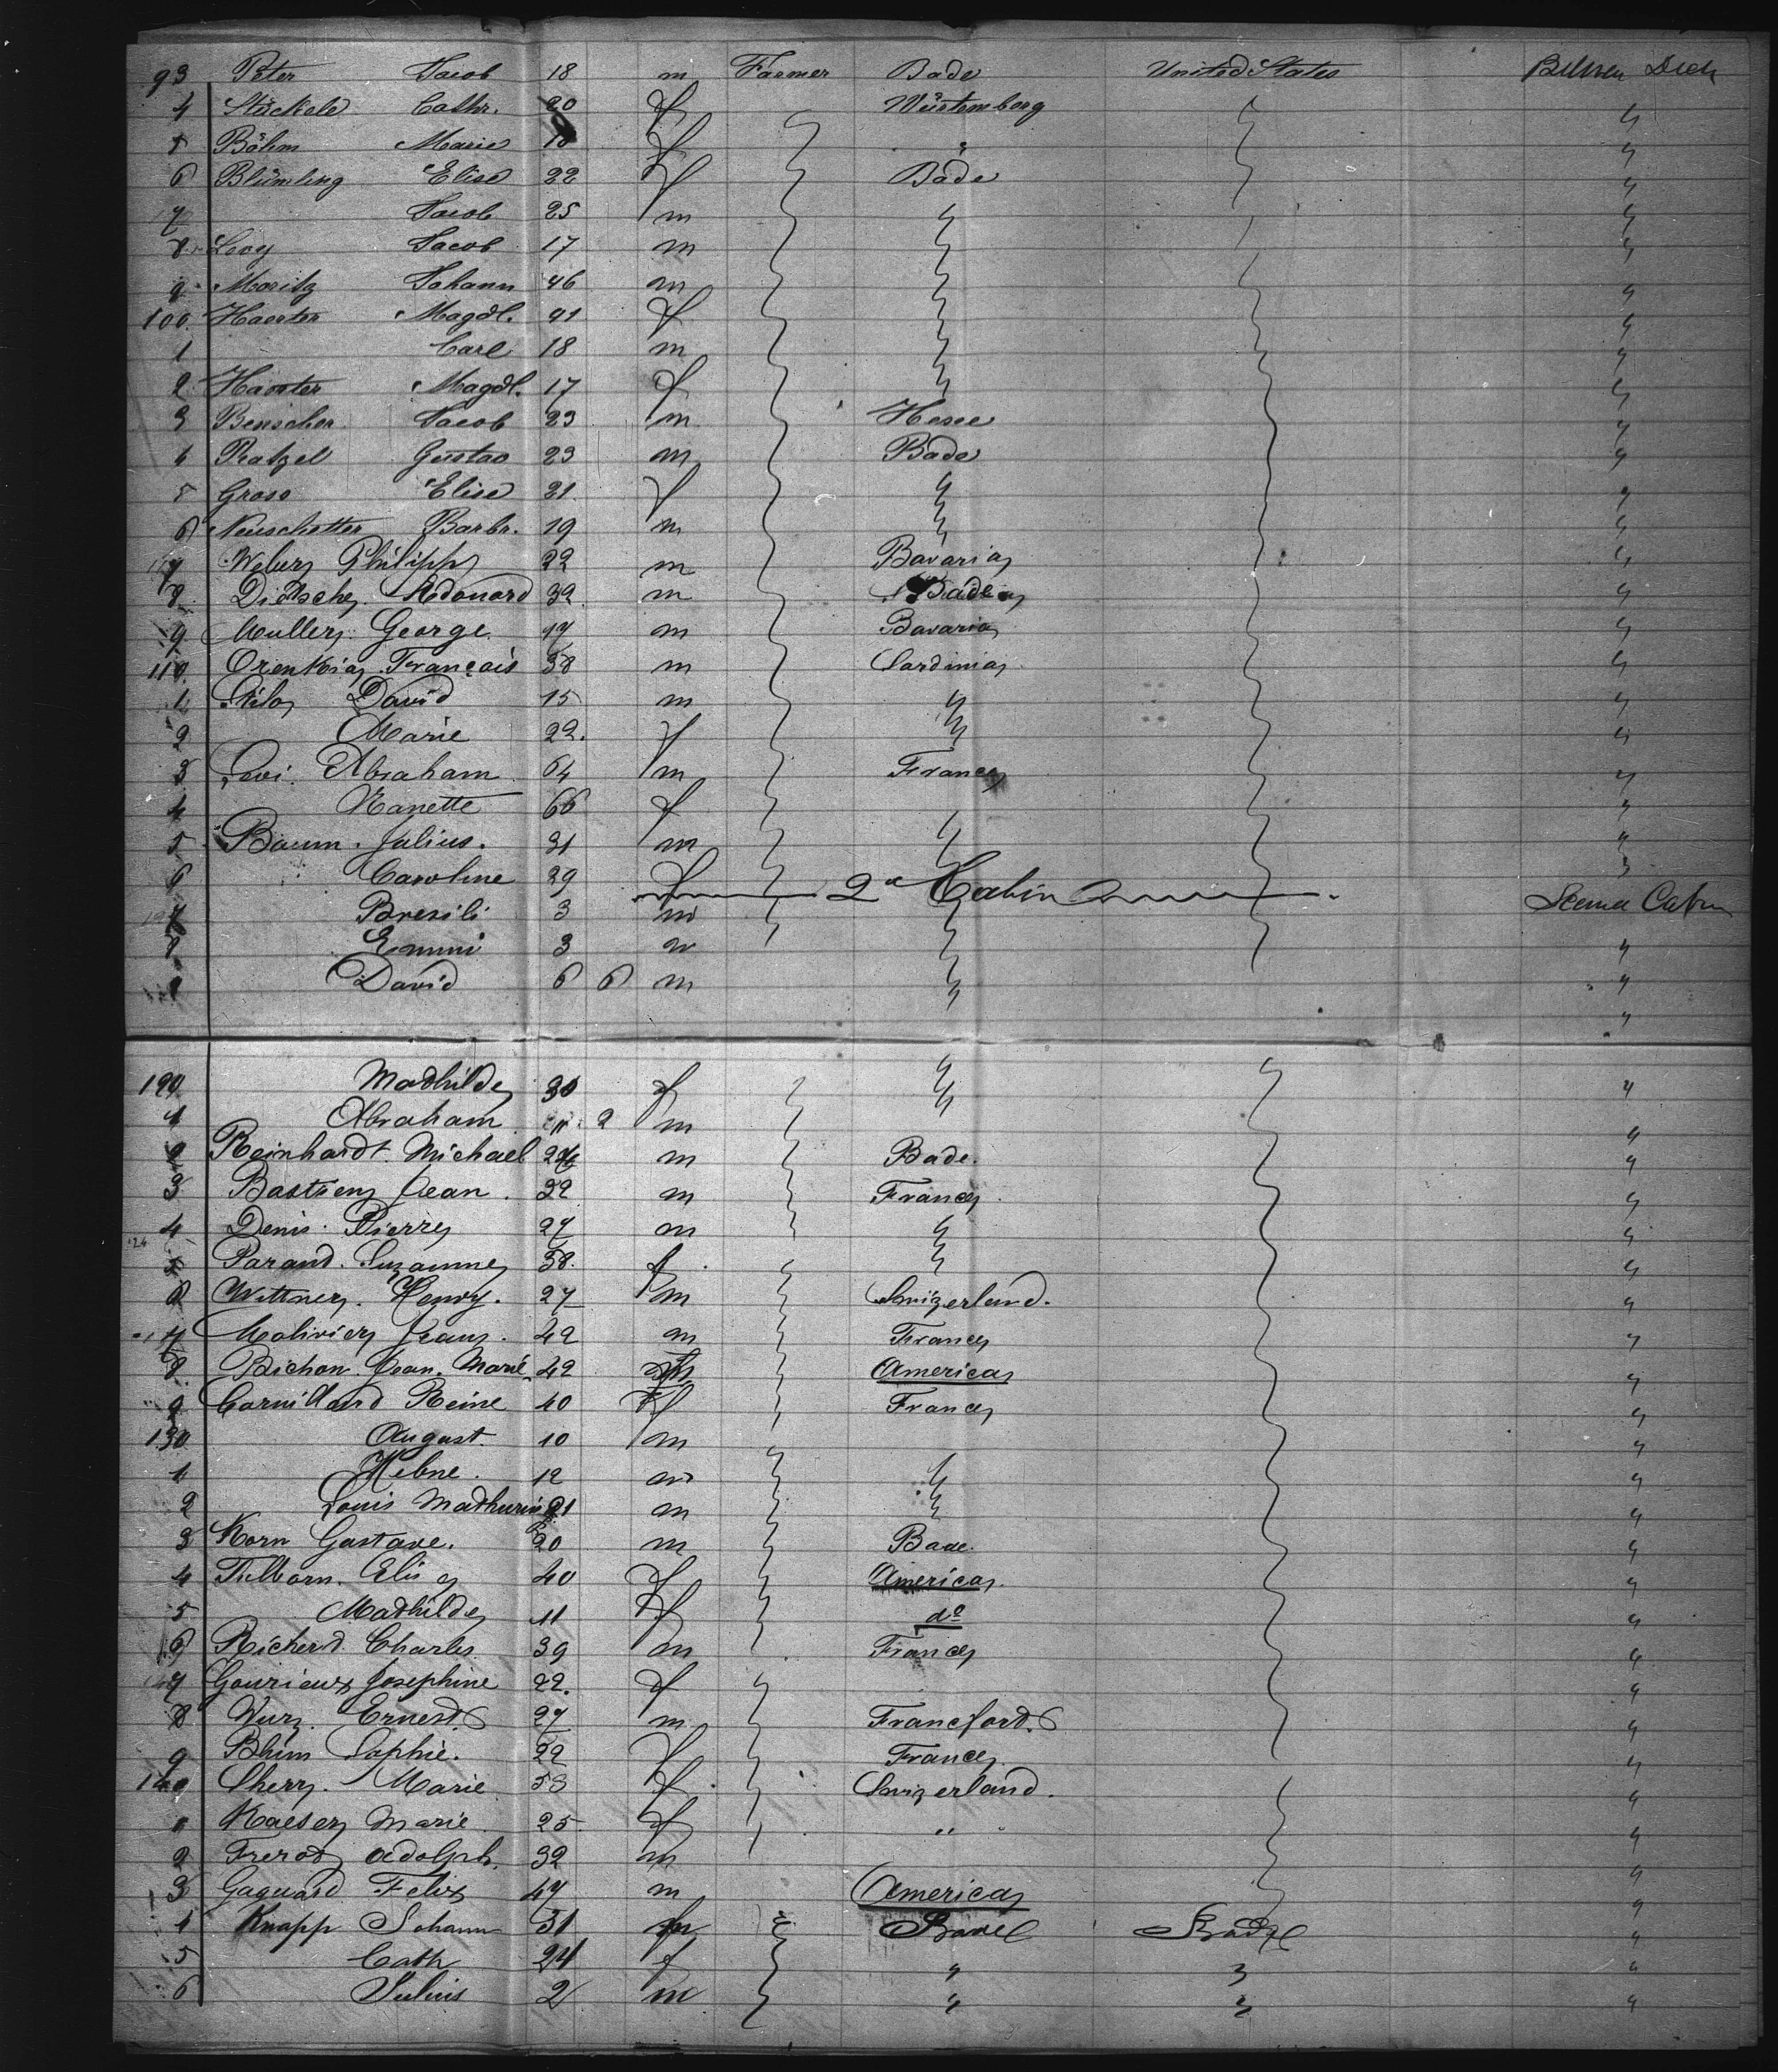 93 Peter Jacob 18 m Farmer Bade United States Between Deck
4 Stäckele Cathr. 20 f Würtemberg "
5 Böhm Marie 18 f " "
6 Blümling Elise 22 f Bade "
7 Jacob 25 m " "
8 Levy Jacob 17 m " "
9 Moritz Johann 46 m " "
100 Haerter Magdl. 41 f " "
1 Carl 18 m " "
2 Haerter Magdl. 17 f " "
3 Benscher Jacob 23 m Hesse "
4 Ratzel Gustav 23 m Bade "
5 Gross Elise 21 f " "
6 Neuschotter Barbr. 19 m " "
7 Weber Philipp 22 m Bavaria "
8 Dietsche Edouard 32 m Bade "
9 Muller George 17 m Bavaria "
110 François 38 m Sardinia "
1 David 15 m " "
2 Marie 22. f " "
3 Levi Abraham 64 m France "
4 Nanette 66 f "
5 Baum. Julius. 31 m " "
6 Caroline 29 f 2d Cabin "
7 3 m " Cabin
8 Emmi 3 m " "
9 David 6 6 m " "
"
120 Mathilde 30 f " "
1 Abraham 11 2 m "
2 Reinhardt. Michael 24 m Bade. "
3 Bastien Jean. 32 m France. "
4 Denis. Pierre 27 m " "
5 Parand. Suzanne 38. f " "
6 Wittmer. Henry. 27 m Swizerland. "
7 Molivier Jean. 42 m France "
8 Bichon Jean. Marie 42 m America "
9 Cornilland Reine 40 f France "
130 August. 10 m "
1 Helene. 12 m " "
2 Louis Mathurin 21 m " "
3 Korn Gustave. 20 m Bade. "
4 Fulborn. Elis 40 f America. "
5 Mathilde 11 f do "
6 Richerd. Charles 39 m France "
7 Gourieux Josephine 22. f "
8 Wurz. Ernest. 27 m Francford. "
9 Blum Sophie. 22 f France. "
140 Cherz. Marie 53 f Swizerland. "
1 Kaeser Marie 25 f " "
2 Adolph. 32 m "
3 Gaguard Felix 47 m America "
4 Knapp Johann 31 m "
5 Cath 24 f " " "
6 Julius 2 m " " "